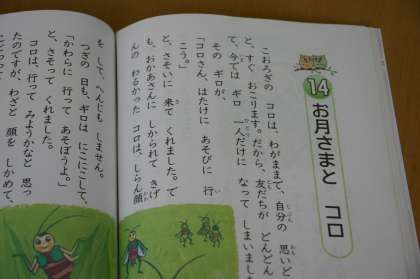 14 お月さまと コロ
こおろぎの コロは、わがままで、自分の 思いど
と、すぐ おこります。だから、友だちが どんどん
て、今では ギロ 一人だけに なって しまいまし
その ギロが、
「コロさん、はたけに あそびに 行
こう。」
と、さそいに 来て くれました。で
も、おかあさんに しかられて きげ
んの わるかった コロは、しらん顔
を して、へんじも しません。
つぎの 日も、ギロは にこにこして、
「かわらに 行って あそぼうよ。」
と、さそって くれました。
コロは、行って みようかなと 思っ
たのですが、わざと 顔を しかめて、